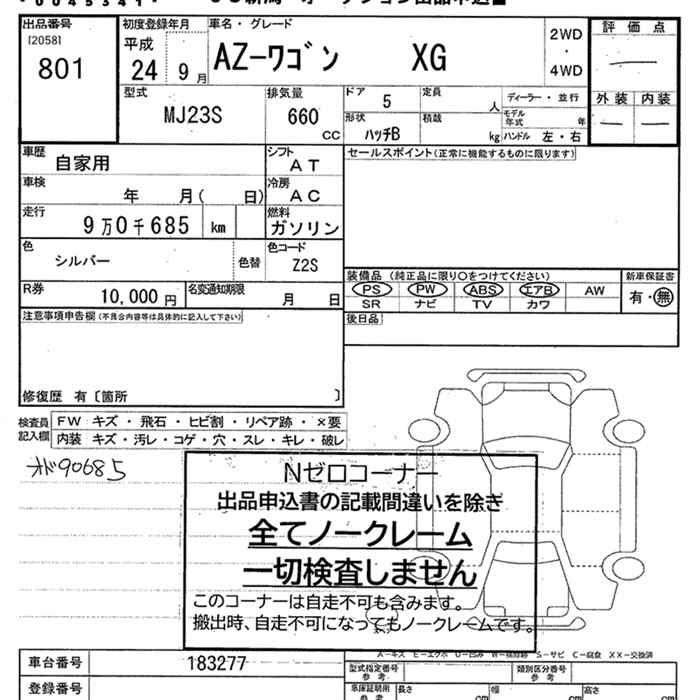 出品番号
[2058]
801
初度登録年月
平成
24 9月
車名・グレード
AZ-ワゴン XG
2WD
・
4WD
評価点
—
外装 内装
— —
型式
MJ23S
排気量
660
CC
ドア
5
定員
人
ディーラー・並行
形状
ハッチB
積載
kg
モデル年式
年
ハンドル 左・右
車歴
自家用
シフト
AT
車検
年 月( 日)
冷房
AC
走行
9万0千685 km
燃料
ガソリン
色
シルバー
色替
色コード
Z2S
R券
10,000円
名変通知期限
月 日
セールスポイント(正常に機能するものに限ります)
装備品 (純正品に限り○をつけてください)
新車保証書
PS PW ABS エアB AW
有・無
SR ナビ TV カワ
後日品
注意事項申告欄(不具合内容等は具体的に記入して下さい)
修復歴 有〔箇所 〕
検査員
記入欄
FW キズ・飛石・ヒビ割・リペア跡・×要
内装 キズ・汚レ・コゲ・穴・スレ・キレ・破レ
オド90685
Nゼロコーナー
出品申込書の記載間違いを除き
全てノークレーム
一切検査しません
このコーナーは自走不可も含みます。
搬出時、自走不可になってもノークレームです。
A-キズ E-エクボ U-凹み W-補修跡 S-サビ C-腐食 XX-交換済
車台番号
183277
型式指定番号
参考
類別区分番号
参考
登録番号
車庫証明用
参考
長さ
cm
幅
cm
高さ
cm